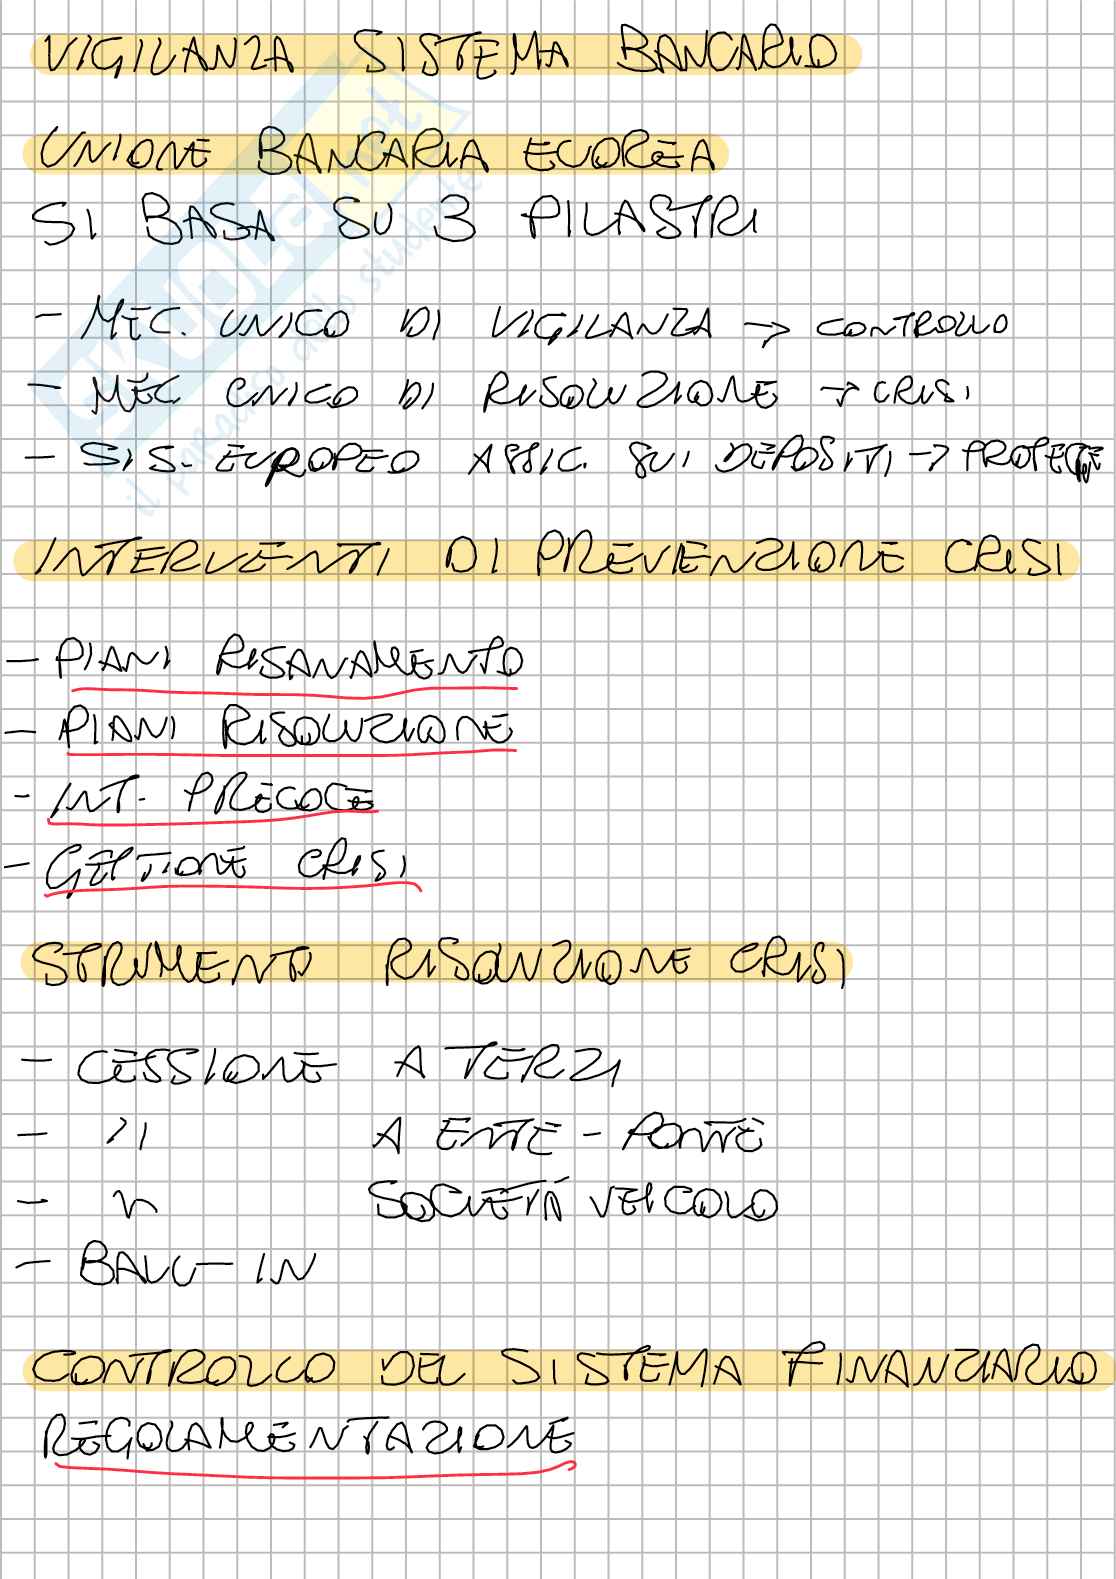 VIGILANZA SISTEMA BANCARIO
UNIONE BANCARIA EUOREA
SI BASA SU 3 PILASTRI
- MEC. UNICO DI VIGILANZA → CONTROLLO
- MEC UNICO DI RISOLUZIONE → CRISI
- SIS. EUROPEO ASSIC. SUI DEPOSITI → PROTEGGE
INTERVENTI DI PREVENZIONE CRISI
- PIANI RISANAMENTO
- PIANI RISOLUZIONE
- INT. PRECOCE
- GESTIONE CRISI
STRUMENTI RISOLUZIONE CRISI
- CESSIONE A TERZI
- " A ENTE - PONTE
- " SOCIETÀ VEICOLO
- BAIL-IN
CONTROLLO DEL SISTEMA FINANZIARIO
REGOLAMENTAZIONE
SKUOLA.net
il paradiso dello studente